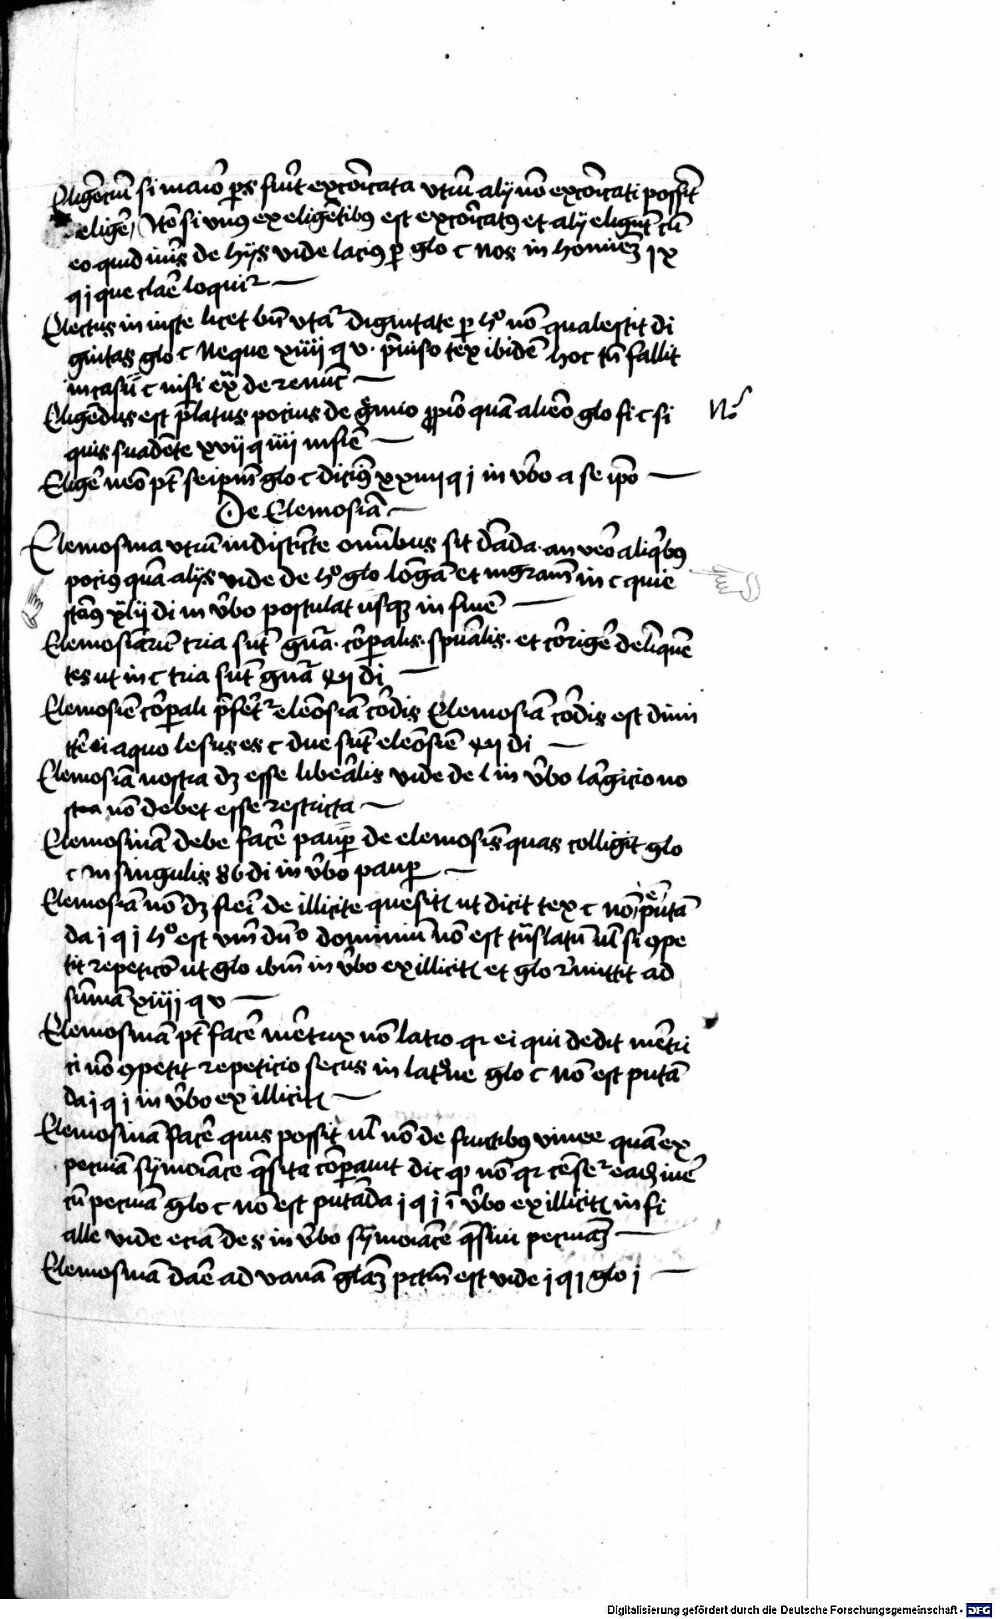 Eligēciū si maior ps fuīt excōicata vtrū alij nō excōicati possīt
eligē Itē si vnus ex eligētibus est excōicatus et alij eligūt cū
eo quid iuris de hijs vide lacius p glo c nos in hominē ix
q j que clare loquit
Electus in iuste licet bn̄ vtat dignitate p hoc nō qualescit di
gnitas glo c Neque xiiij q v. p̄miso tex ibidē hoc tn̄ fallit
in casu c nisi ex de renūc
Eligēdus est p̄latus pocius de gremio proprio quā alieno glo fi c si
No
quis suadēte xvij q iiij in fine
Eligē nō pt seipm̄ glo c xxiiij q j in v̄bo a se ipo
De Elemosīa
Elemosina vtrū indistīcte om̄ibus sit dāda. an vero aliqbus
pocius quā alijs vide de hoc glo lōgā et in c quie
xlij di in v̄bo postulat usq in finē
Elemosīarū tria sūt gn̄a. corpalis. spūalis. et corigē delīquē
tes ut in c tria sūt gn̄a di
Elemosīe corpali p̄fert eleōsīa cordis Elemosīa cordis est dimi
tte ei a quo lesus es c due sūt eleōsie di
Elemosīa nostra dz esse liberalis vide de l in v̄bo largicio no
stra nō debet esse restricta
Elemosinā debe facē paup de elemosīs quas colligit glo
c in singulis 86 di in v̄bo paup
Elemosīa nō dz fieri de illicite quesit ut dicit tex c nō putā
da j q j hoc est vm̄ dominiū nō est trāslatū ul si ɔpe
tit repeticō ut glo ibm̄ in v̄bo ex illicit et glo remittit ad
sūmā xiiij q v
Elemosinā pt facē meretrix nō latro qr ei qui dedit meretri
ci nō ɔpetit repeticio secus in latrōne glo c nō est putā
da j q j in v̄bo ex illicit
Elemosinā facē quis possit ul nō de fructibus vinee quā ex
pecuīa symoīace qsita cōpauit dic q nō qr cēset eadē
cū pecuīa glo c nō est putāda j q j ī v̄bo ex illicit in fi
alle vide eciā des in v̄bo symoīace
Elemosinā dare ad vanā glaz pctm̄ est vide j q j glo j
Digitalisierung gefördert durch die Deutsche Forschungsgemeinschaft - DFG